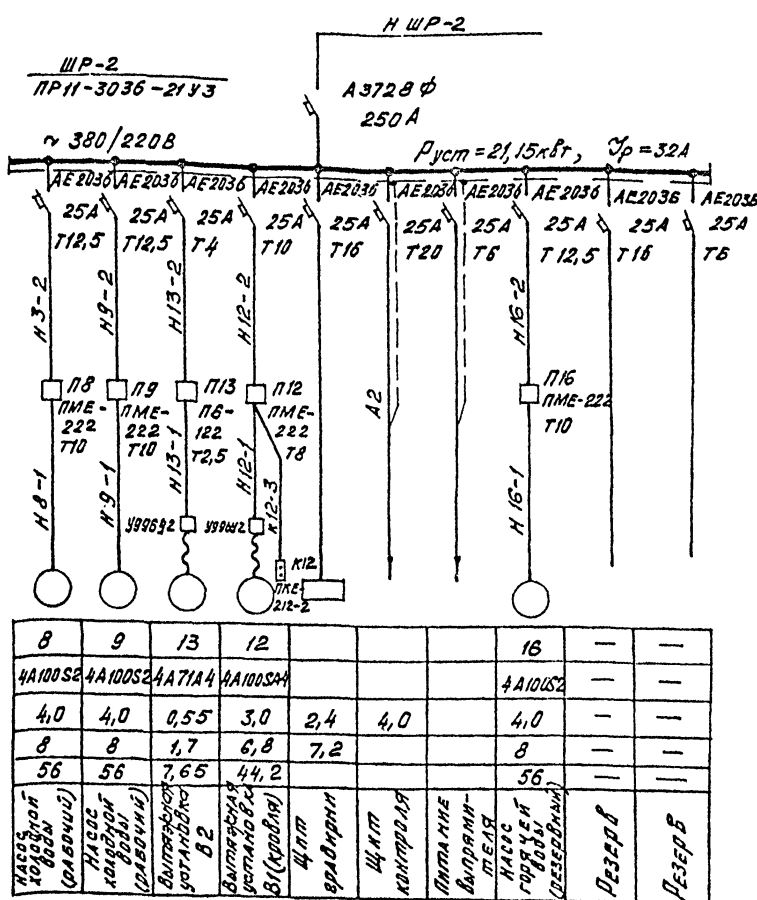 Н ШР-2
ШР-2
ПР11-3036-21У3
А3728Ф
250А
~ 380/220В
Руст=21,15квт, Jр=32А
АЕ2036 АЕ2036 АЕ2036 АЕ2036 АЕ2036 АЕ2036 АЕ2036 АЕ2036 АЕ2036
25А 25А 25А 25А 25А 25А 25А 25А 25А 25А
Т12,5 Т12,5 Т4 Т10 Т16 Т20 Т6 Т12,5 Т16 Т6
Н3-2
Н9-2
Н13-2
Н12-2
Н16-2
А2
П8
ПМЕ-
222
Т10
П9
ПМЕ-
222
Т10
П13
П6-
122
Т2,5
П12
ПМЕ-
222
Т8
П16
ПМЕ-222
Т10
Н8-1
Н9-1
Н13-1
Н12-1
К12-3
Н16-1
К12
ПКЕ-
212-2
8 9 13 12 16 — —
4А100S2 4А100S2 4А71А4 4А100SА4 4А100S2 — —
4,0 4,0 0,55 3,0 2,4 4,0 4,0 — —
8 8 1,7 6,8 7,2 8 — —
56 56 7,65 44,2 56 — —
Насос
холодной
воды
(рабочий)
Насос
холодной
воды
(рабочий)
Вытяжная
установка
В2
Вытяжная
установка
В1(кровля)
Щит
Щит
контроля
Питание
выпрями-
теля
Насос
горячей
воды
(резервный)
Резерв
Резерв